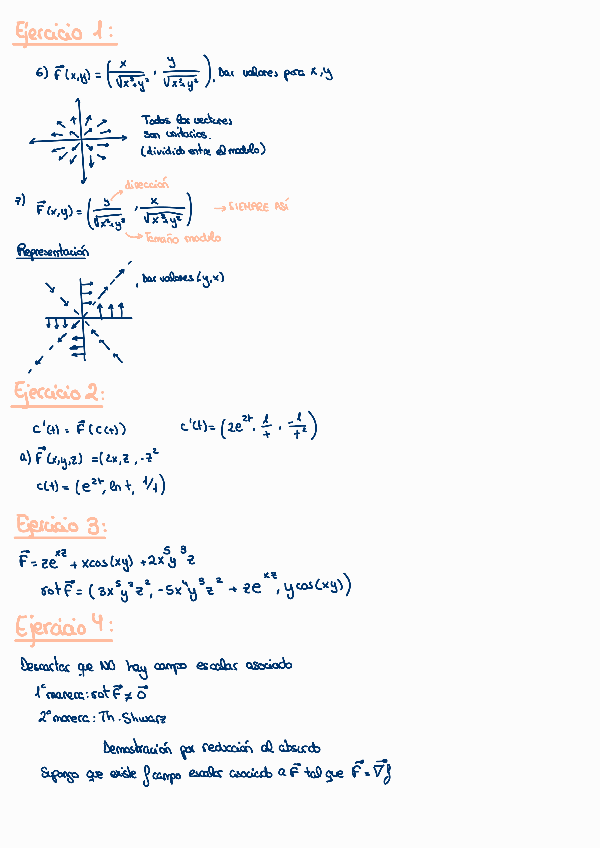 Ejercicio 1:
6) F⃗(x,y) = (x/√x²+y², y/√x²+y²), Dar valores para x,y
Todos los vectores
son unitarios.
(dividido entre el modulo)
dirección
7) F⃗(x,y) = (y/√x²+y², x/√x²+y²) → SIEMPRE ASÍ
→ Tamaño modulo
Representación
, Dar valores (y,x)
Ejercicio 2:
c'(t) = F⃗(c(t)) c'(t) = (2e^2t, 1/t, -1/t²)
a) F⃗(x,y,z) = (2x, z, -z²
c(t) = (e^2t, ln t, 1/t)
Ejercicio 3:
F⃗ = ze^xz + xcos(xy) + 2x⁵y³z
rot F⃗ = (3x⁵y²z², -5x⁴y³z² + ze^xz, ycos(xy))
Ejercicio 4:
Descartar que NO hay campo escalar asociado
1ª manera: rot F⃗ ≠ 0⃗
2ª manera: Th. Shwarz
Demostración por reducción al absurdo
Supongo que existe f campo escalar asociado a F⃗ tal que F⃗ = ∇⃗f